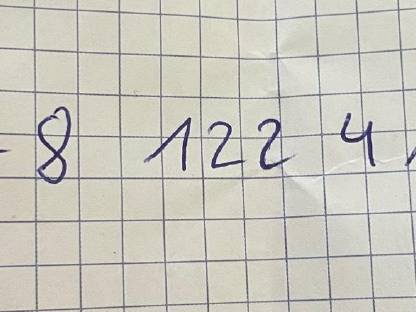 -8 122 4